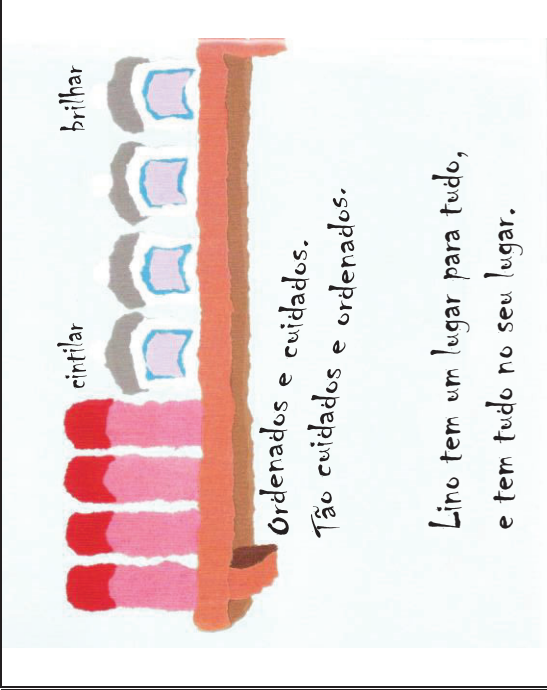 cintilar
brilhar
Ordenados e cuidados.
Tão cuidados e ordenados.
Lino tem um lugar para tudo,
e tem tudo no seu lugar.